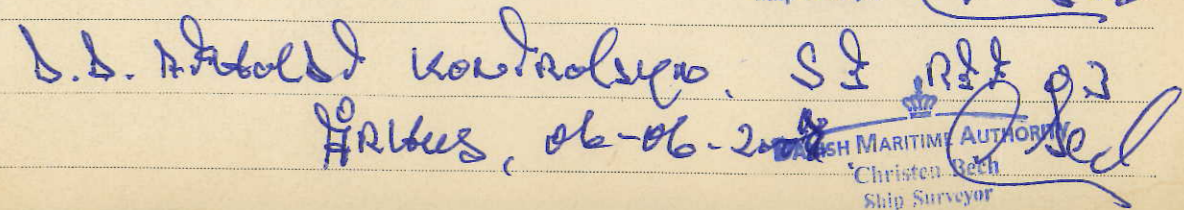 D.D. Afholdt Kontrolsyn, SE RII 93
Århus, 06-06-
DANISH MARITIME AUTHORITY
Christen Bech
Ship Surveyor